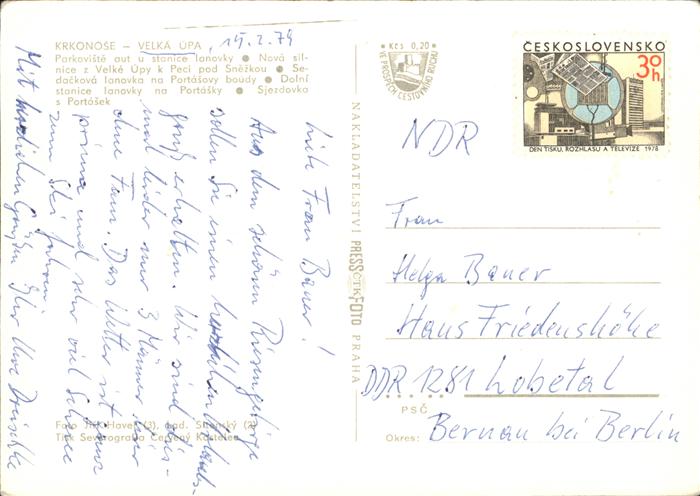 KRKONOŠE – VELKÁ ÚPA
15.2.79
Parkoviště aut u stanice lanovky • Nová sil-
nice z Velké Úpy k Peci pod Sněžkou • Se-
dačková lanovka na Portášovy boudy • Dolní
stanice lanovky na Portášky • Sjezdovka
s Portášek
Liebe Frau Bauer!
Aus dem schönen Riesengebirge
sollen Sie einen herzlichen Urlaubs-
gruß erhalten. Wir sind dies-
mal leider nur 3 Männer hier
ohne Frau. Das Wetter ist ganz
prima und sehr viel Schnee
zum Ski fahren.
Mit herzlichen Grüßen Ihr Uwe
Foto Jiří Havel (3), nad. Sittenský (2)
Tisk Severografia Červený Kostelec
NAKLADATELSTVÍ PRESSFOTO PRAHA
ČTK
• Kčs 0,20 •
VE PROSPĚCH CESTOVNÍHO RUCHU
ČESKOSLOVENSKO
30h
DEN TISKU, ROZHLASU A TELEVIZE 1978
NDR
Frau
Helga Bauer
Haus Friedenshöhe
DDR 1281 Lobetal
PSČ
Okres: Bernau bei Berlin